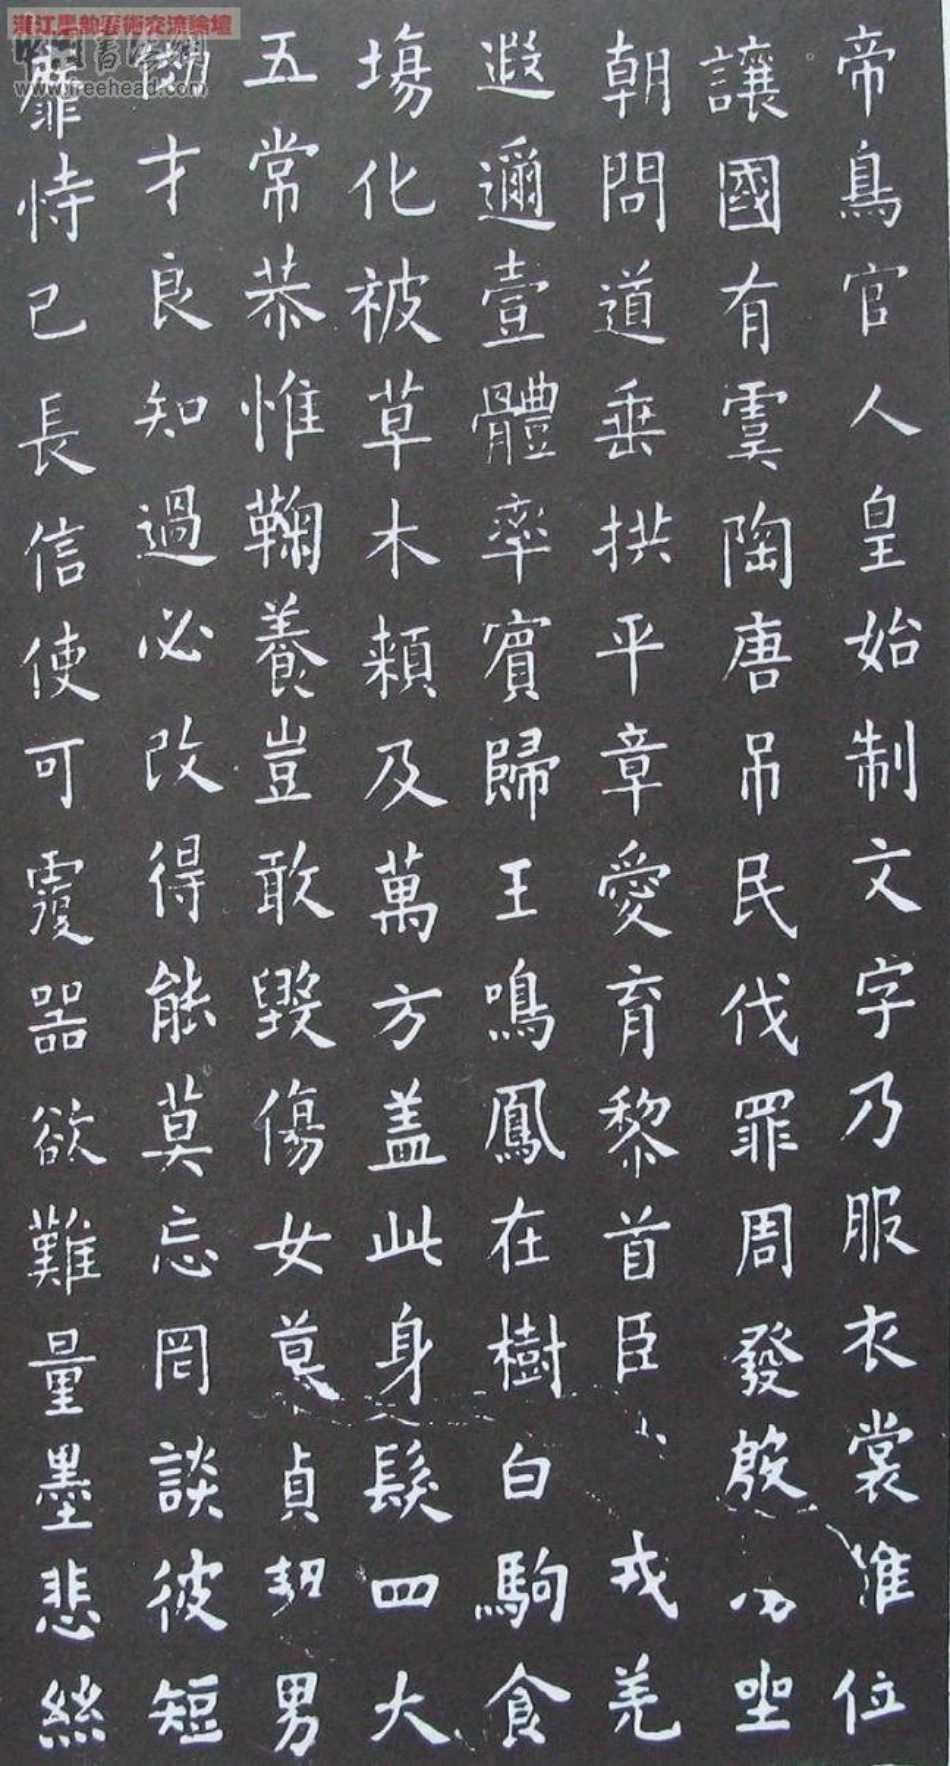 帝鳥官人皇始制文字乃服衣裳推位
讓國有虞陶唐吊民伐罪周發殷坐
朝問道垂拱平章愛育黎首臣戎羌
遐邇壹體率賓歸王鳴鳳在樹白駒食
場化被草木賴及萬方盖此身髮四大
五常恭惟鞠養豈敢毀傷女莫貞男
才良知過必改得能莫忘罔談彼短
靡恃己長信使可覆器欲難量墨悲絲
漢江墨韵藝術交流論壇
書法網
www.freehead.com